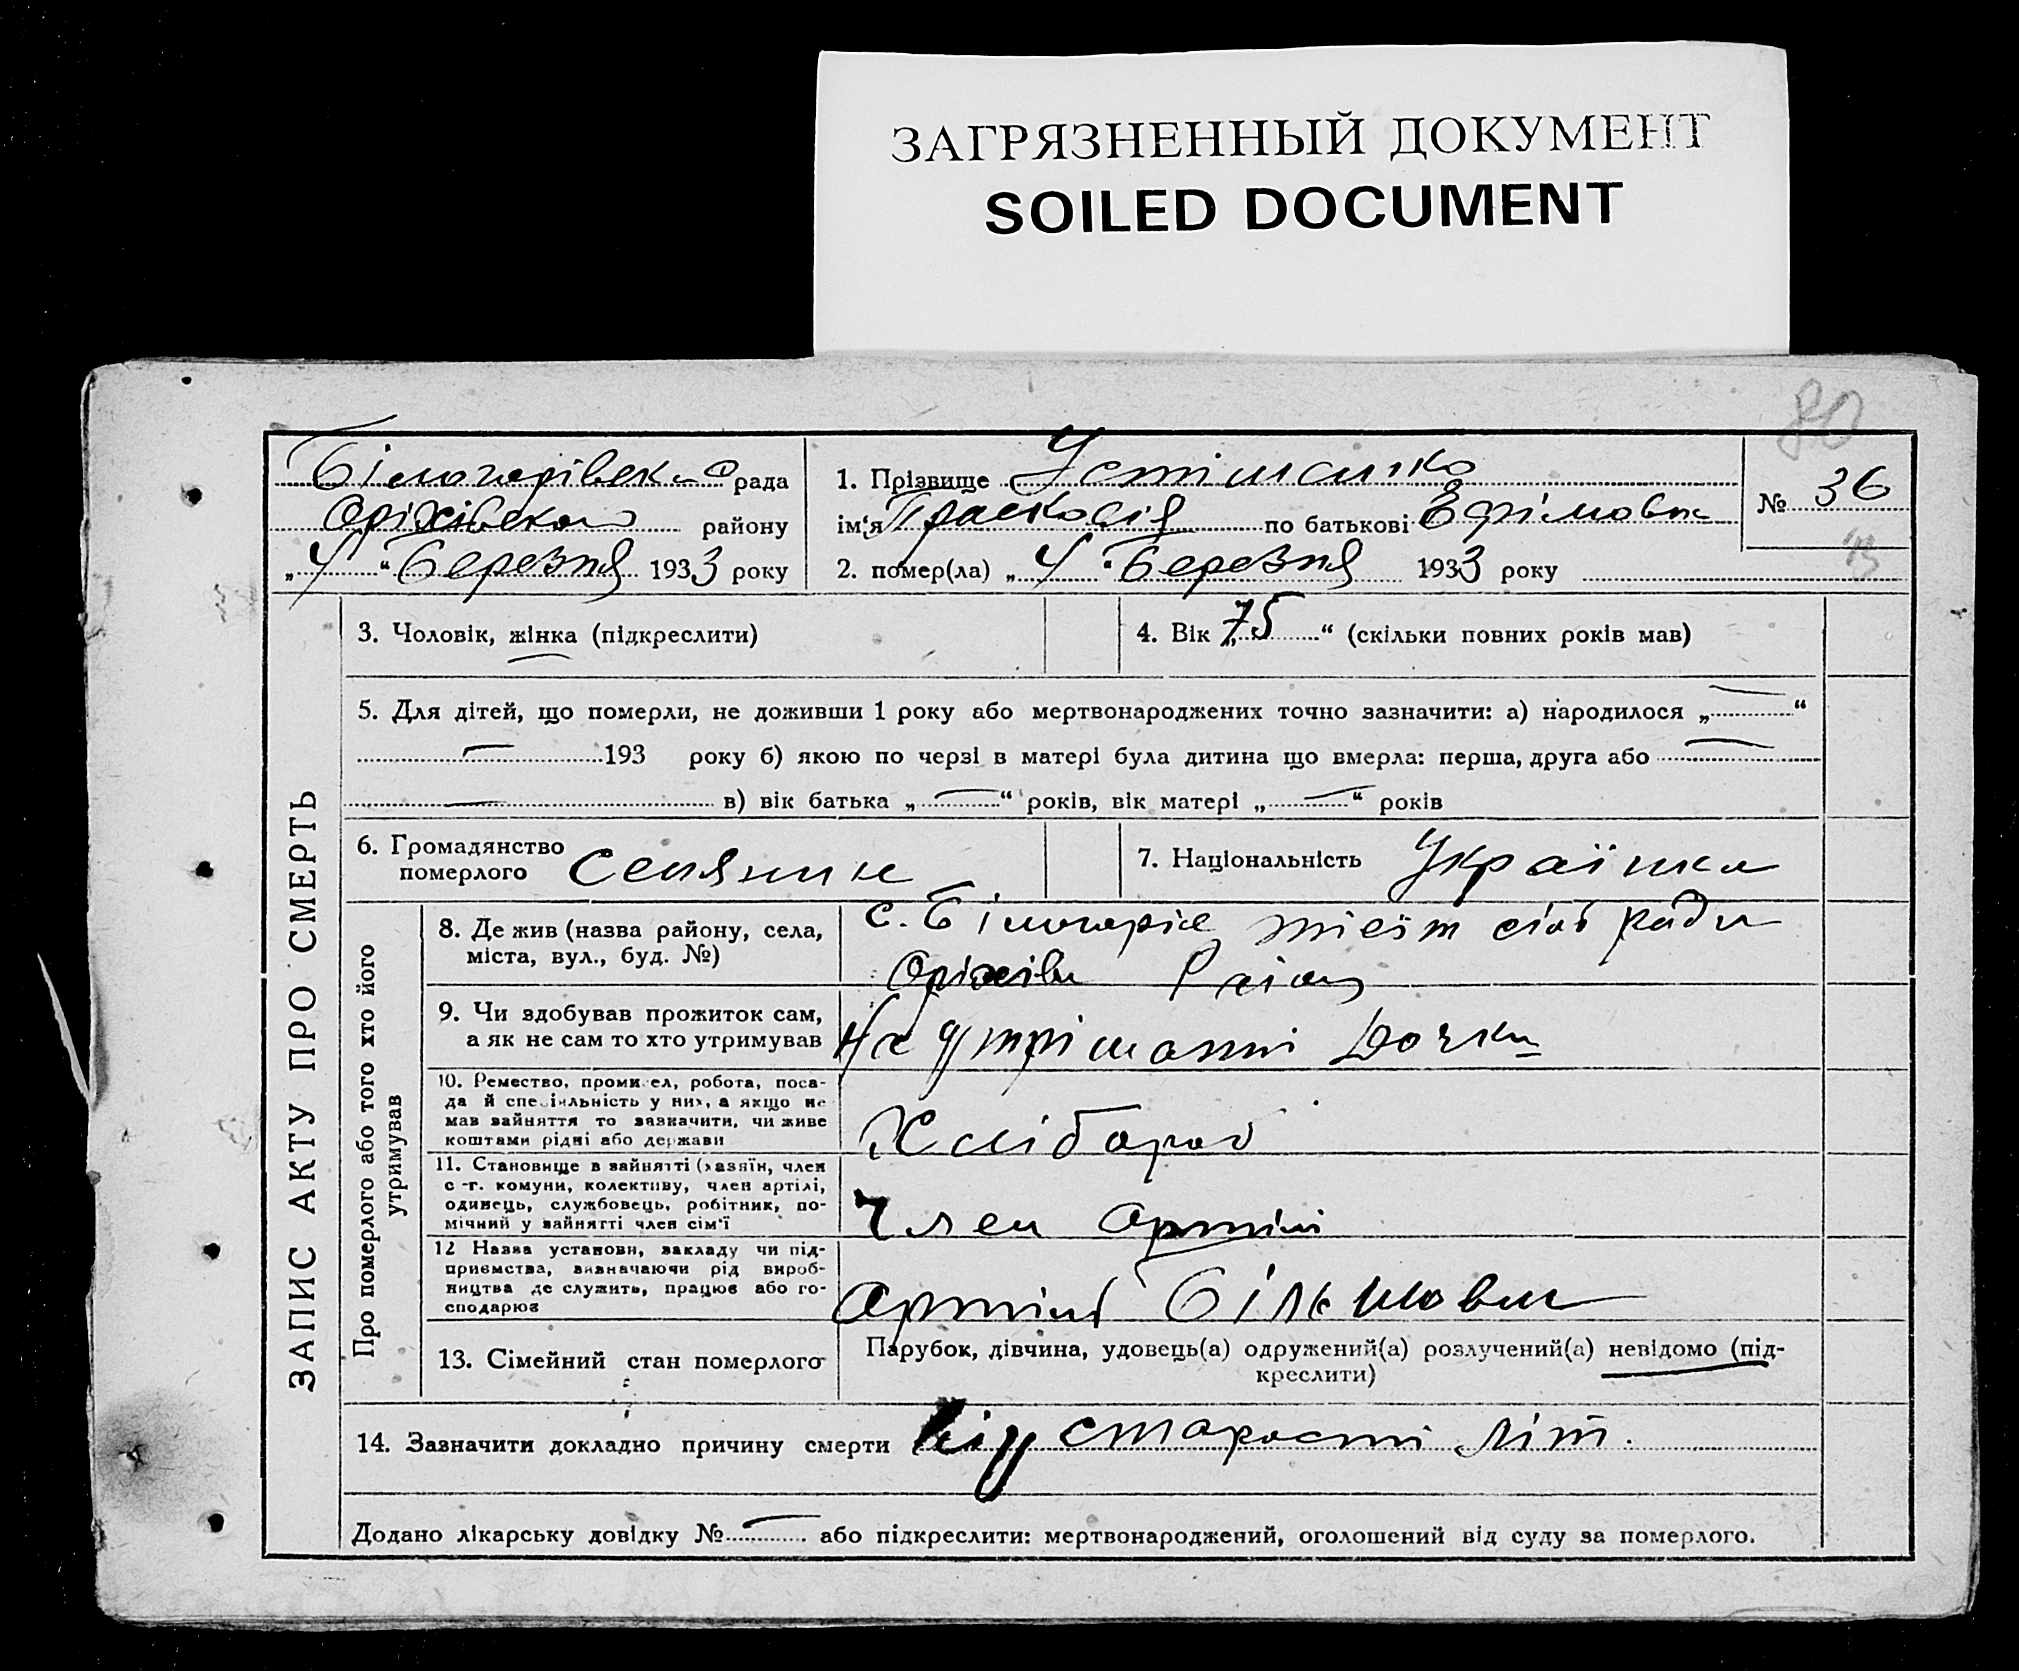 ЗАГРЯЗНЕННЫЙ ДОКУМЕНТ
SOILED DOCUMENT
80
Білогорівська рада
Оріхівського району
„4“ Березня 1933 року
1. Прізвище Устіменко
ім'я Прасковія по батькові Ефімовна
2. помер(ла) „4“ Березня 1933 року
№ 36
ЗАПИС АКТУ ПРО СМЕРТЬ
3. Чоловік, жінка (підкреслити)
4. Вік „75“ (скільки повних років мав)
5. Для дітей, що померли, не доживши 1 року або мертвонароджених точно зазначити: а) народилося „—“
— 193 року б) якою по черзі в матері була дитина що вмерла: перша, друга або —
— в) вік батька „—“ років, вік матері „—“ років
6. Громадянство
померлого
7. Національність Українка
Про померлого або того хто його
утримував
8. Де жив (назва району, села,
міста, вул., буд. №)
с. Білогоріє тієїж сіль ради
Оріхівськ Району
9. Чи здобував прожиток сам,
а як не сам то хто утримував
На утріманні Дочки
10. Ремество, промисел, робота, поса-
да й спеціяльність у них, а якщо не
мав зайняття то зазначити, чи живе
коштами рідні або держави
Хлібороб
11. Становище в зайнятті (хазяїн, член
с.-г. комуни, колективу, член артілі,
одинець, службовець, робітник, по-
мічний у зайнятті член сім'ї
Член Артілі
12 Назва установи, закладу чи під-
приємства, визначаючи рід вироб-
ництва де служить, працює або го-
сподарює
Артіль Більшовик
13. Сімейний стан померлого
Парубок, дівчина, удовець(а) одружений(а) розлучений(а) невідомо (під-
креслити)
14. Зазначити докладно причину смерти від старости літ.
Додано лікарську довідку № — або підкреслити: мертвонароджений, оголошений від суду за померлого.